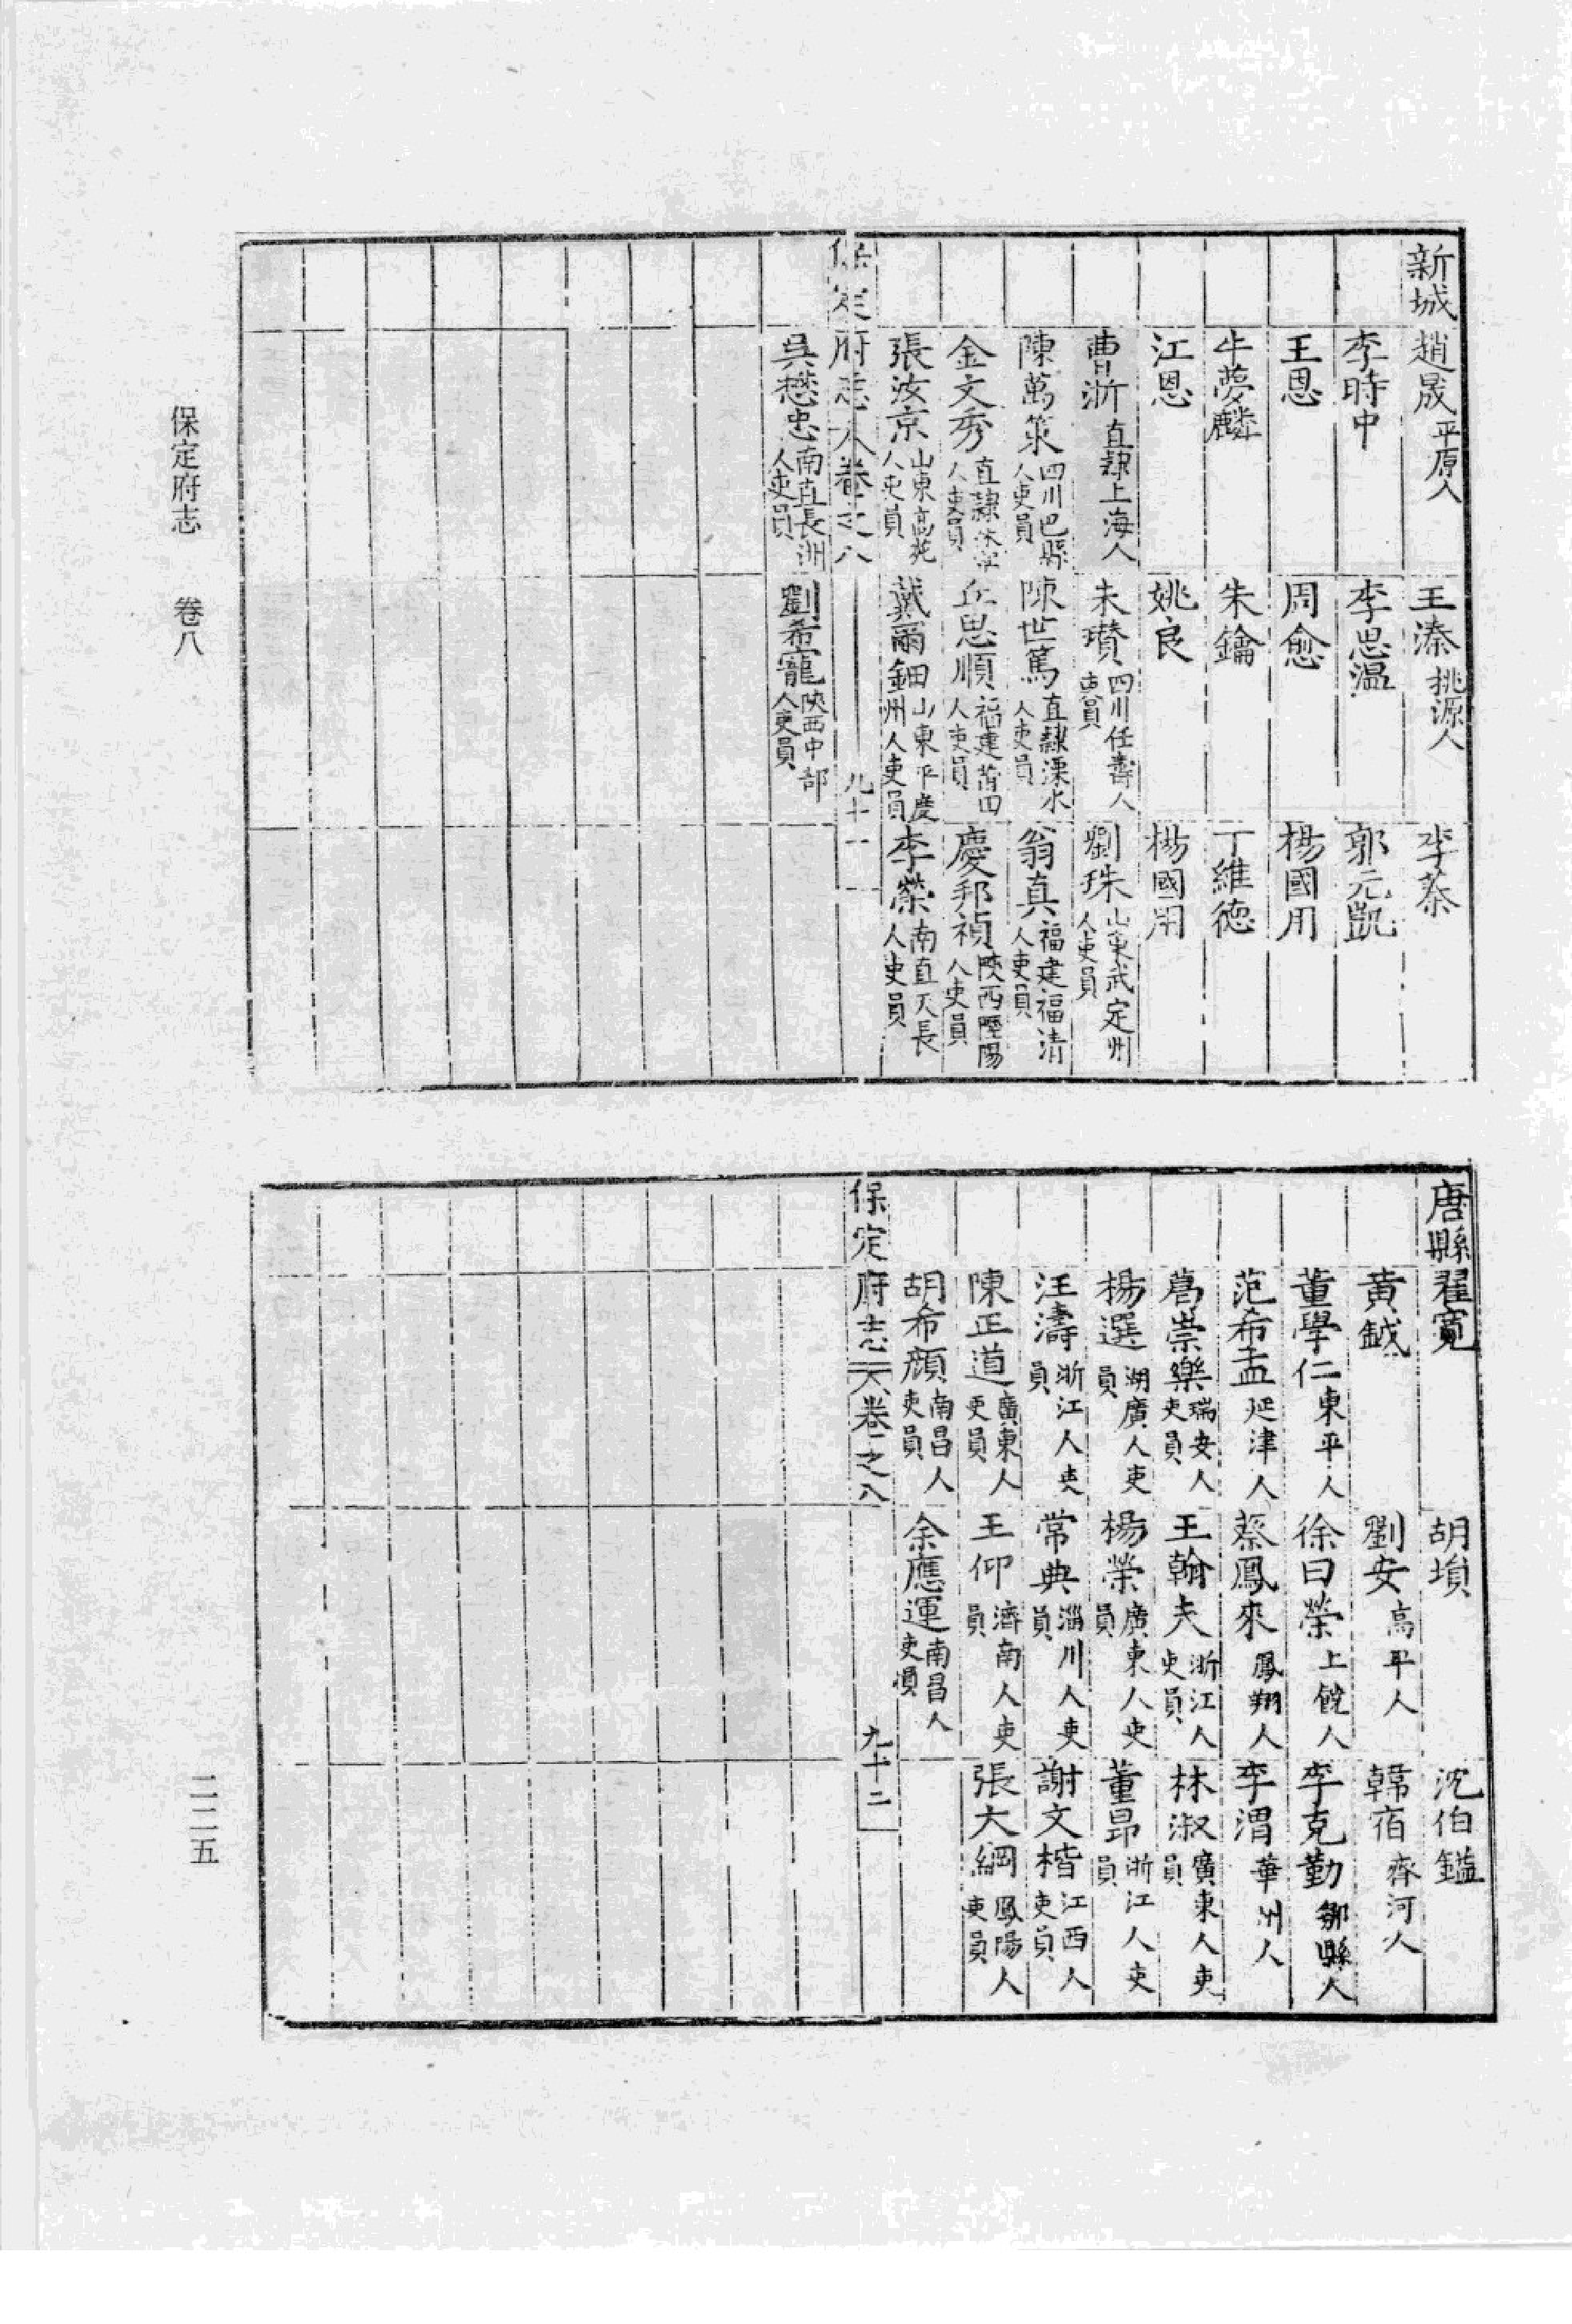 新城 趙晟平原人 王溱桃源人 李蓁
李時中 李思溫 郭元凱
王恩 周愈 楊國用
牛夢麟 朱鑰 丁維德
江恩 姚良 楊國用
曹浙直隸上海人 朱瓚四川任壽人吏員 劉珠山東武定州人吏員
陳萬策四川巴縣人吏員 陳世篤直隸溧水人吏員 翁真福建福清人吏員
金文秀直隸休寧人吏員 丘思順福建莆田人吏員 慶邦禎陝西涇陽人吏員
張汝京山東高苑人吏員 戴爾鈿山東平度州人吏員 李榮南直天長人吏員
保定府志 卷之八 九十一
吳懋忠南直長洲人吏員 劉希寵陝西中部人吏員
唐縣 翟寬 胡塤 沈伯鑑
黃鉞 劉安高平人 韓宿齊河人
董學仁東平人 徐曰榮上饒人 李克勤鄒縣人
范希孟延津人 蔡鳳來鳳翔人 李渭華州人
葛崇樂瑞安人吏員 王翰夫浙江人吏員 林淑廣東人吏員
楊選湖廣人吏員 楊榮廣東人吏員 董昂浙江人吏員
汪濤浙江人吏員 常典淄川人吏員 謝文楷江西人吏員
陳正道廣東人吏員 王仰濟南人吏員 張大綱鳳陽人吏員
胡希顏南昌人吏員 余應運南昌人吏員
保定府志 卷之八 九十二
保定府志 卷八
二二五